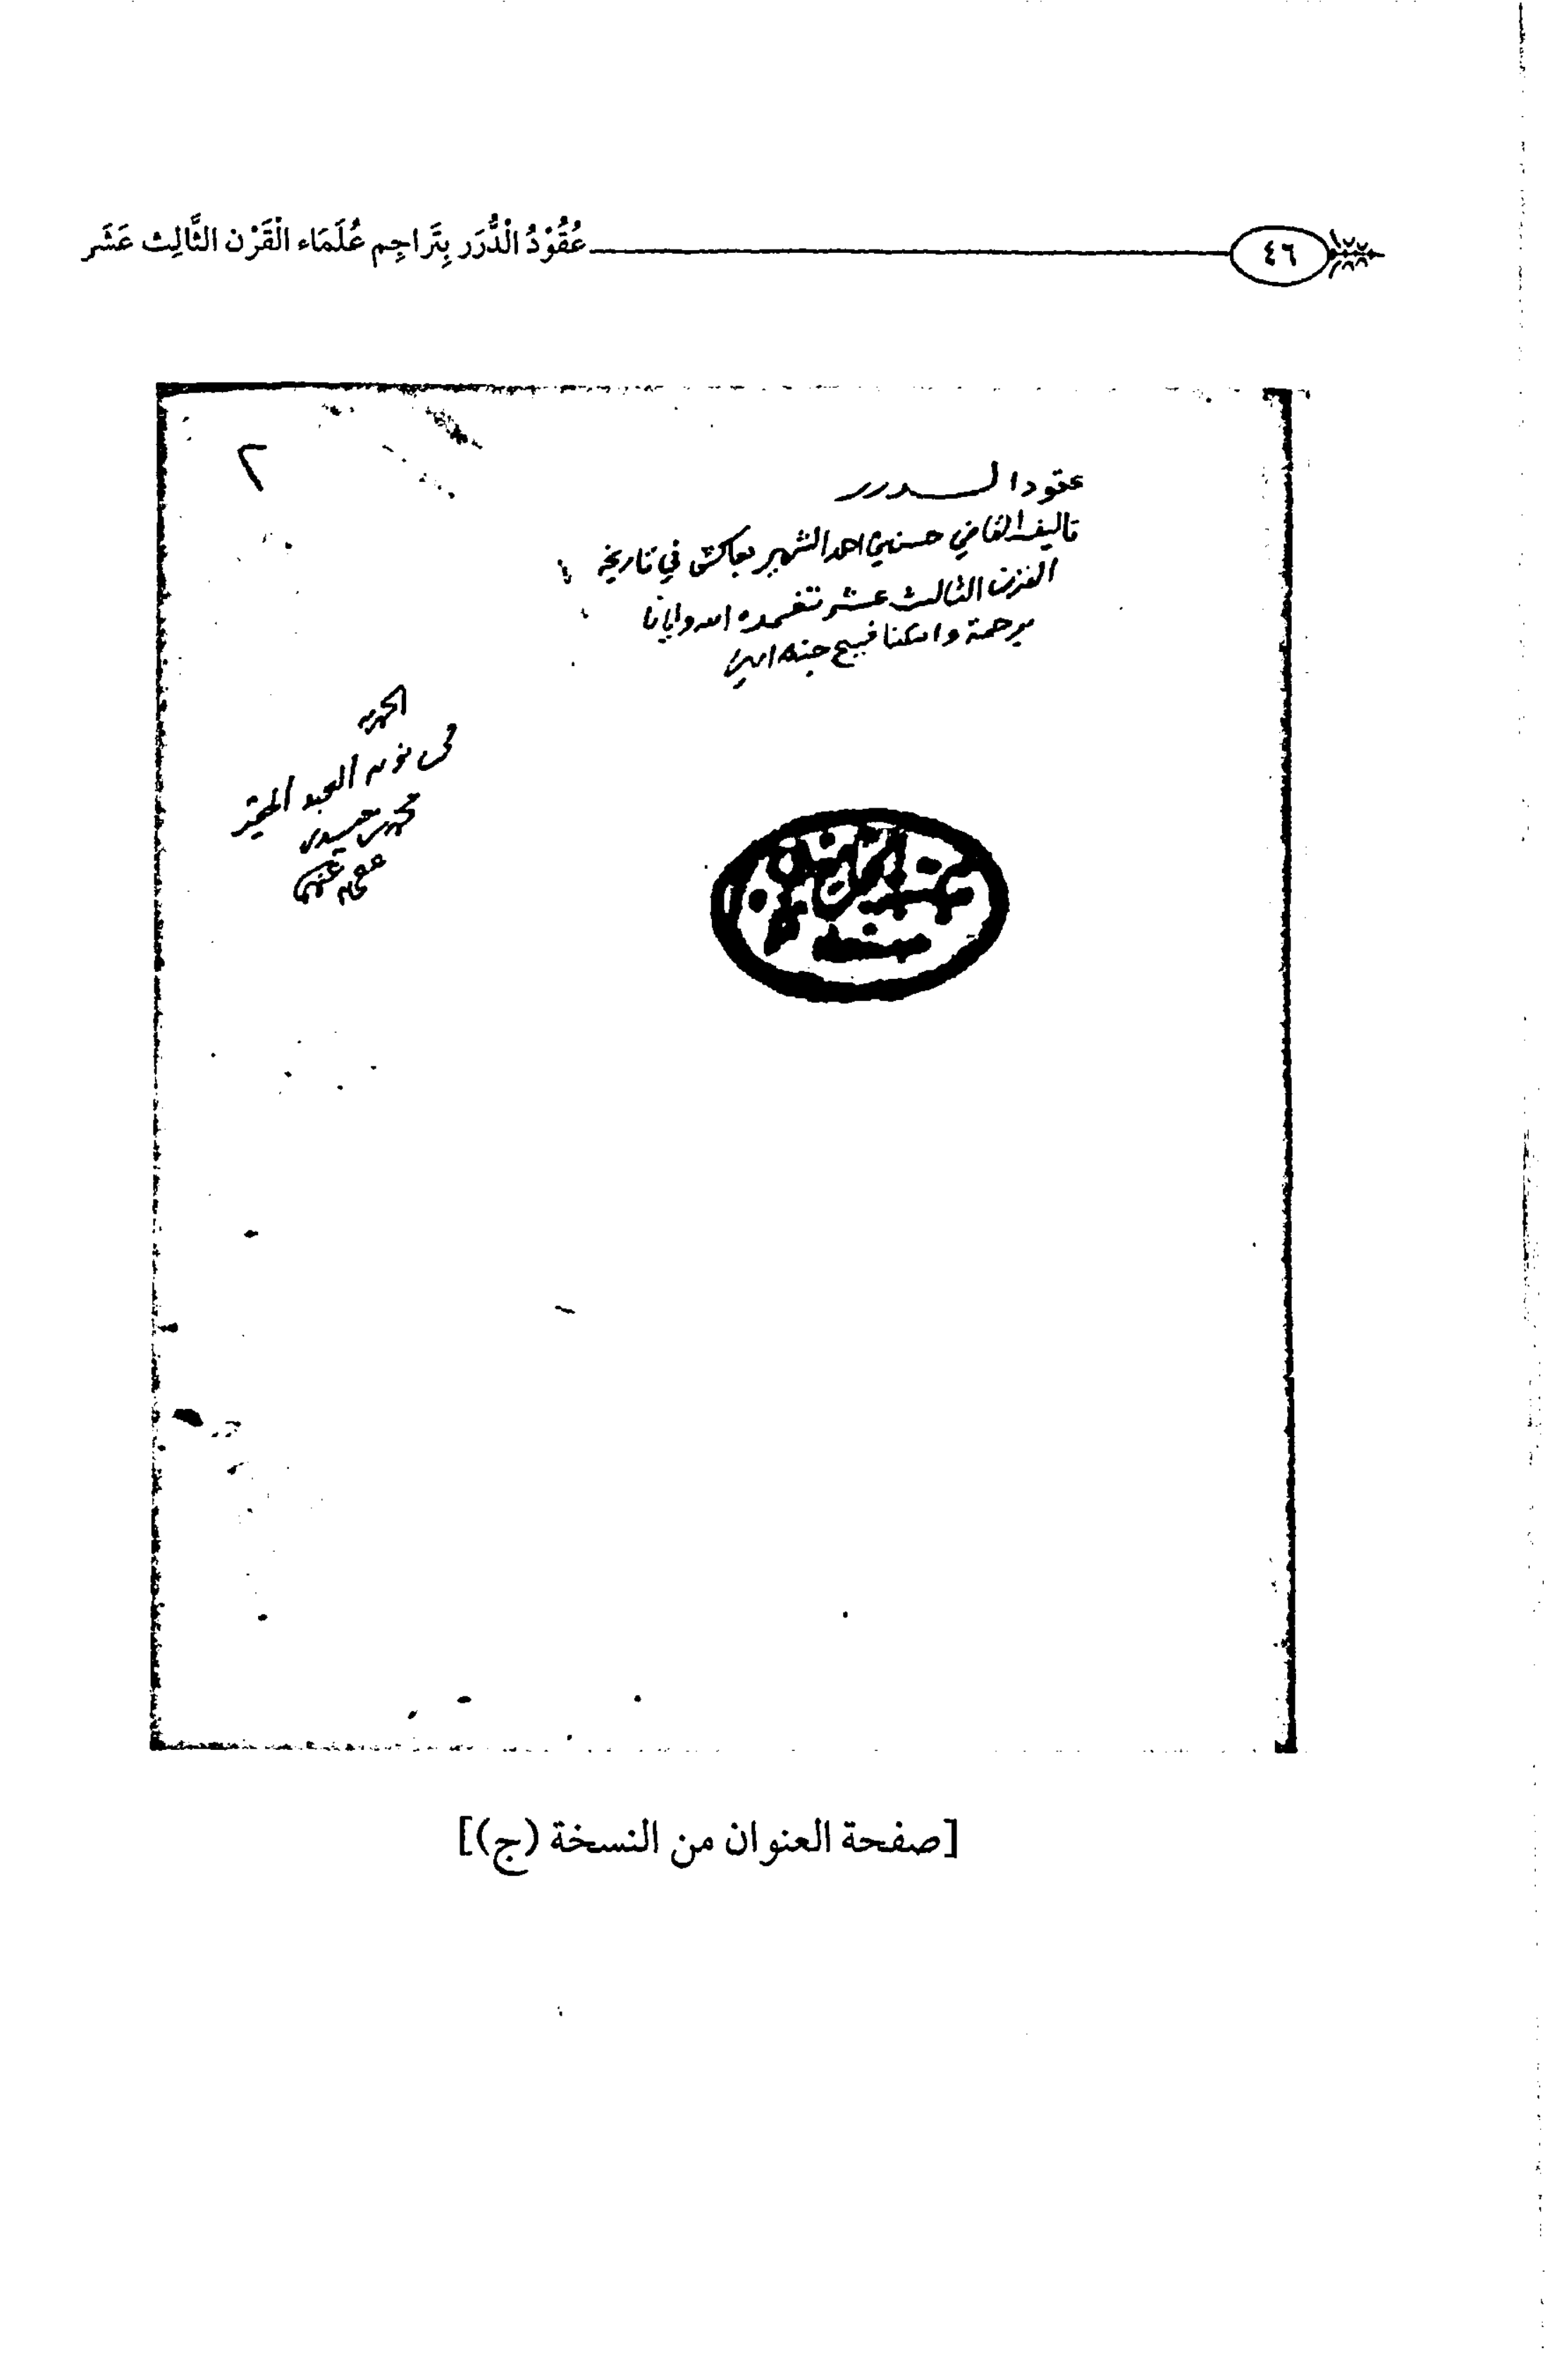 ٤٦ عُقُوْدُ الْدُّرَر بِتَرَاجِم عُلَمَاء الْقَرْن الثَّالِث عَشَر
٢
عقود الــدرر
تاليف القاضي حسن بن احمد الشهير بعاكش في تاريخ
القرن الثالث عشر تغمده الله وايانا
برحمة واسكنا فسيح جنته امين
الحمد لله
من العبد الحقير
محمد
عفي عنه
[صفحة العنوان من النسخة (ج)]